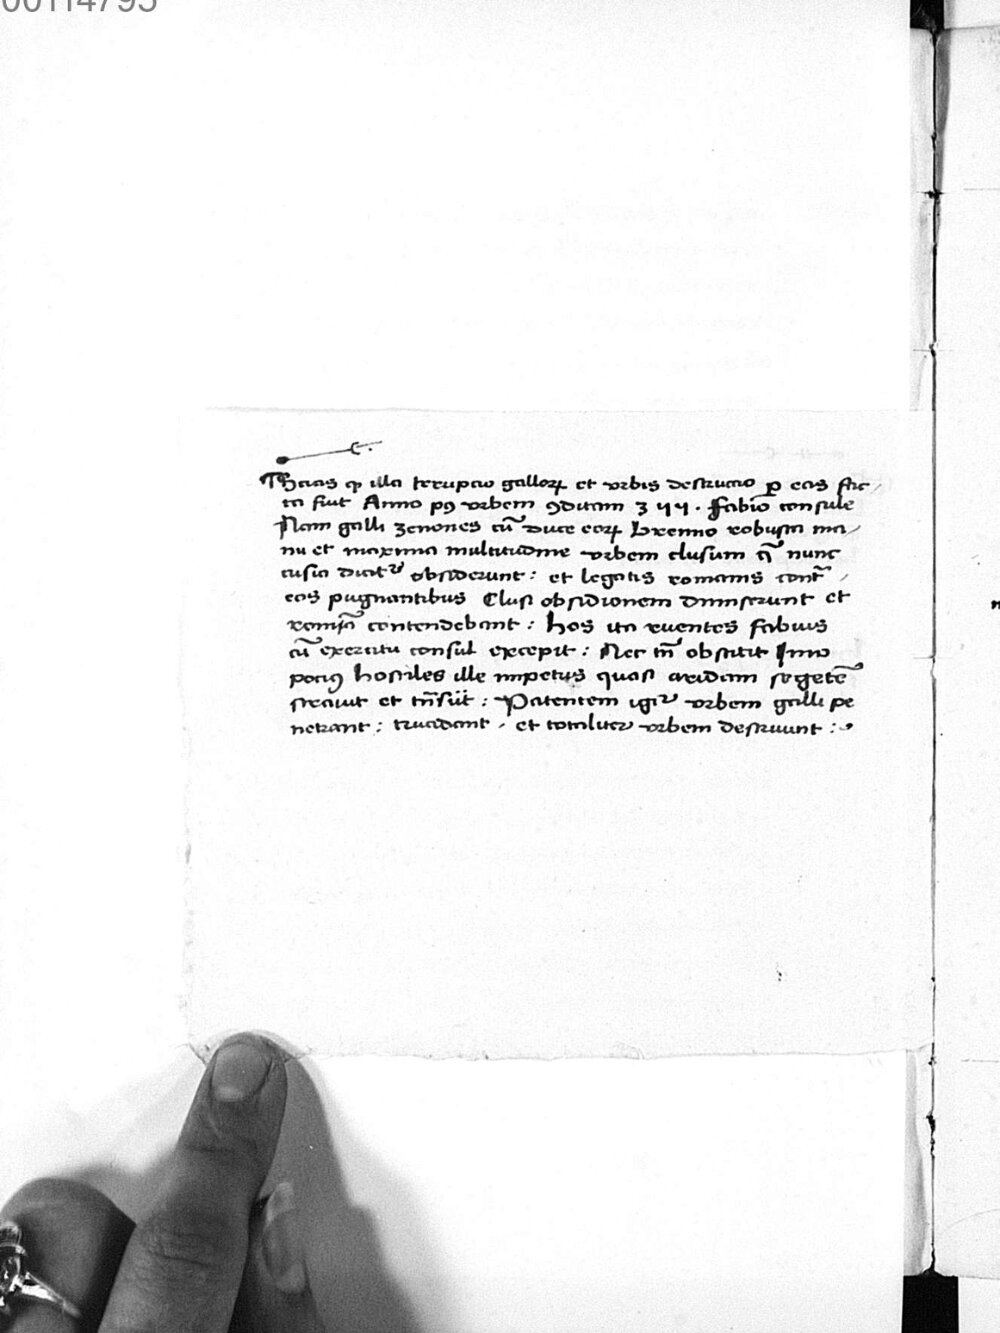 00114795
Scias qꝫ illa terupcio gallorꝝ et vrbis destructio ꝑ eas fac
ta fuit Anno pꝰ vrbem ꝯditam 3 Fabio consule
Nam galli zenones cū duce eorꝝ brenno robusta ma
nu et maxima multitudine vrbem clusum q̄ nunc
cusia dicit᷑ obsiderunt : et legatis romanis cont᷑
eos pugnantibus Clusi obsidionem dimiserunt et
romā contendebant : hos ita ruentes fabius
cū exercitu consul excepit : Nec tn̄ obstitit Imo
pociꝰ hostiles ille impetus quasi aridam segetē
strauit et trn̄siit : Patentem igit᷑ vrbem galli pe
netrant : trucidant , et totaliter vrbem destruunt :